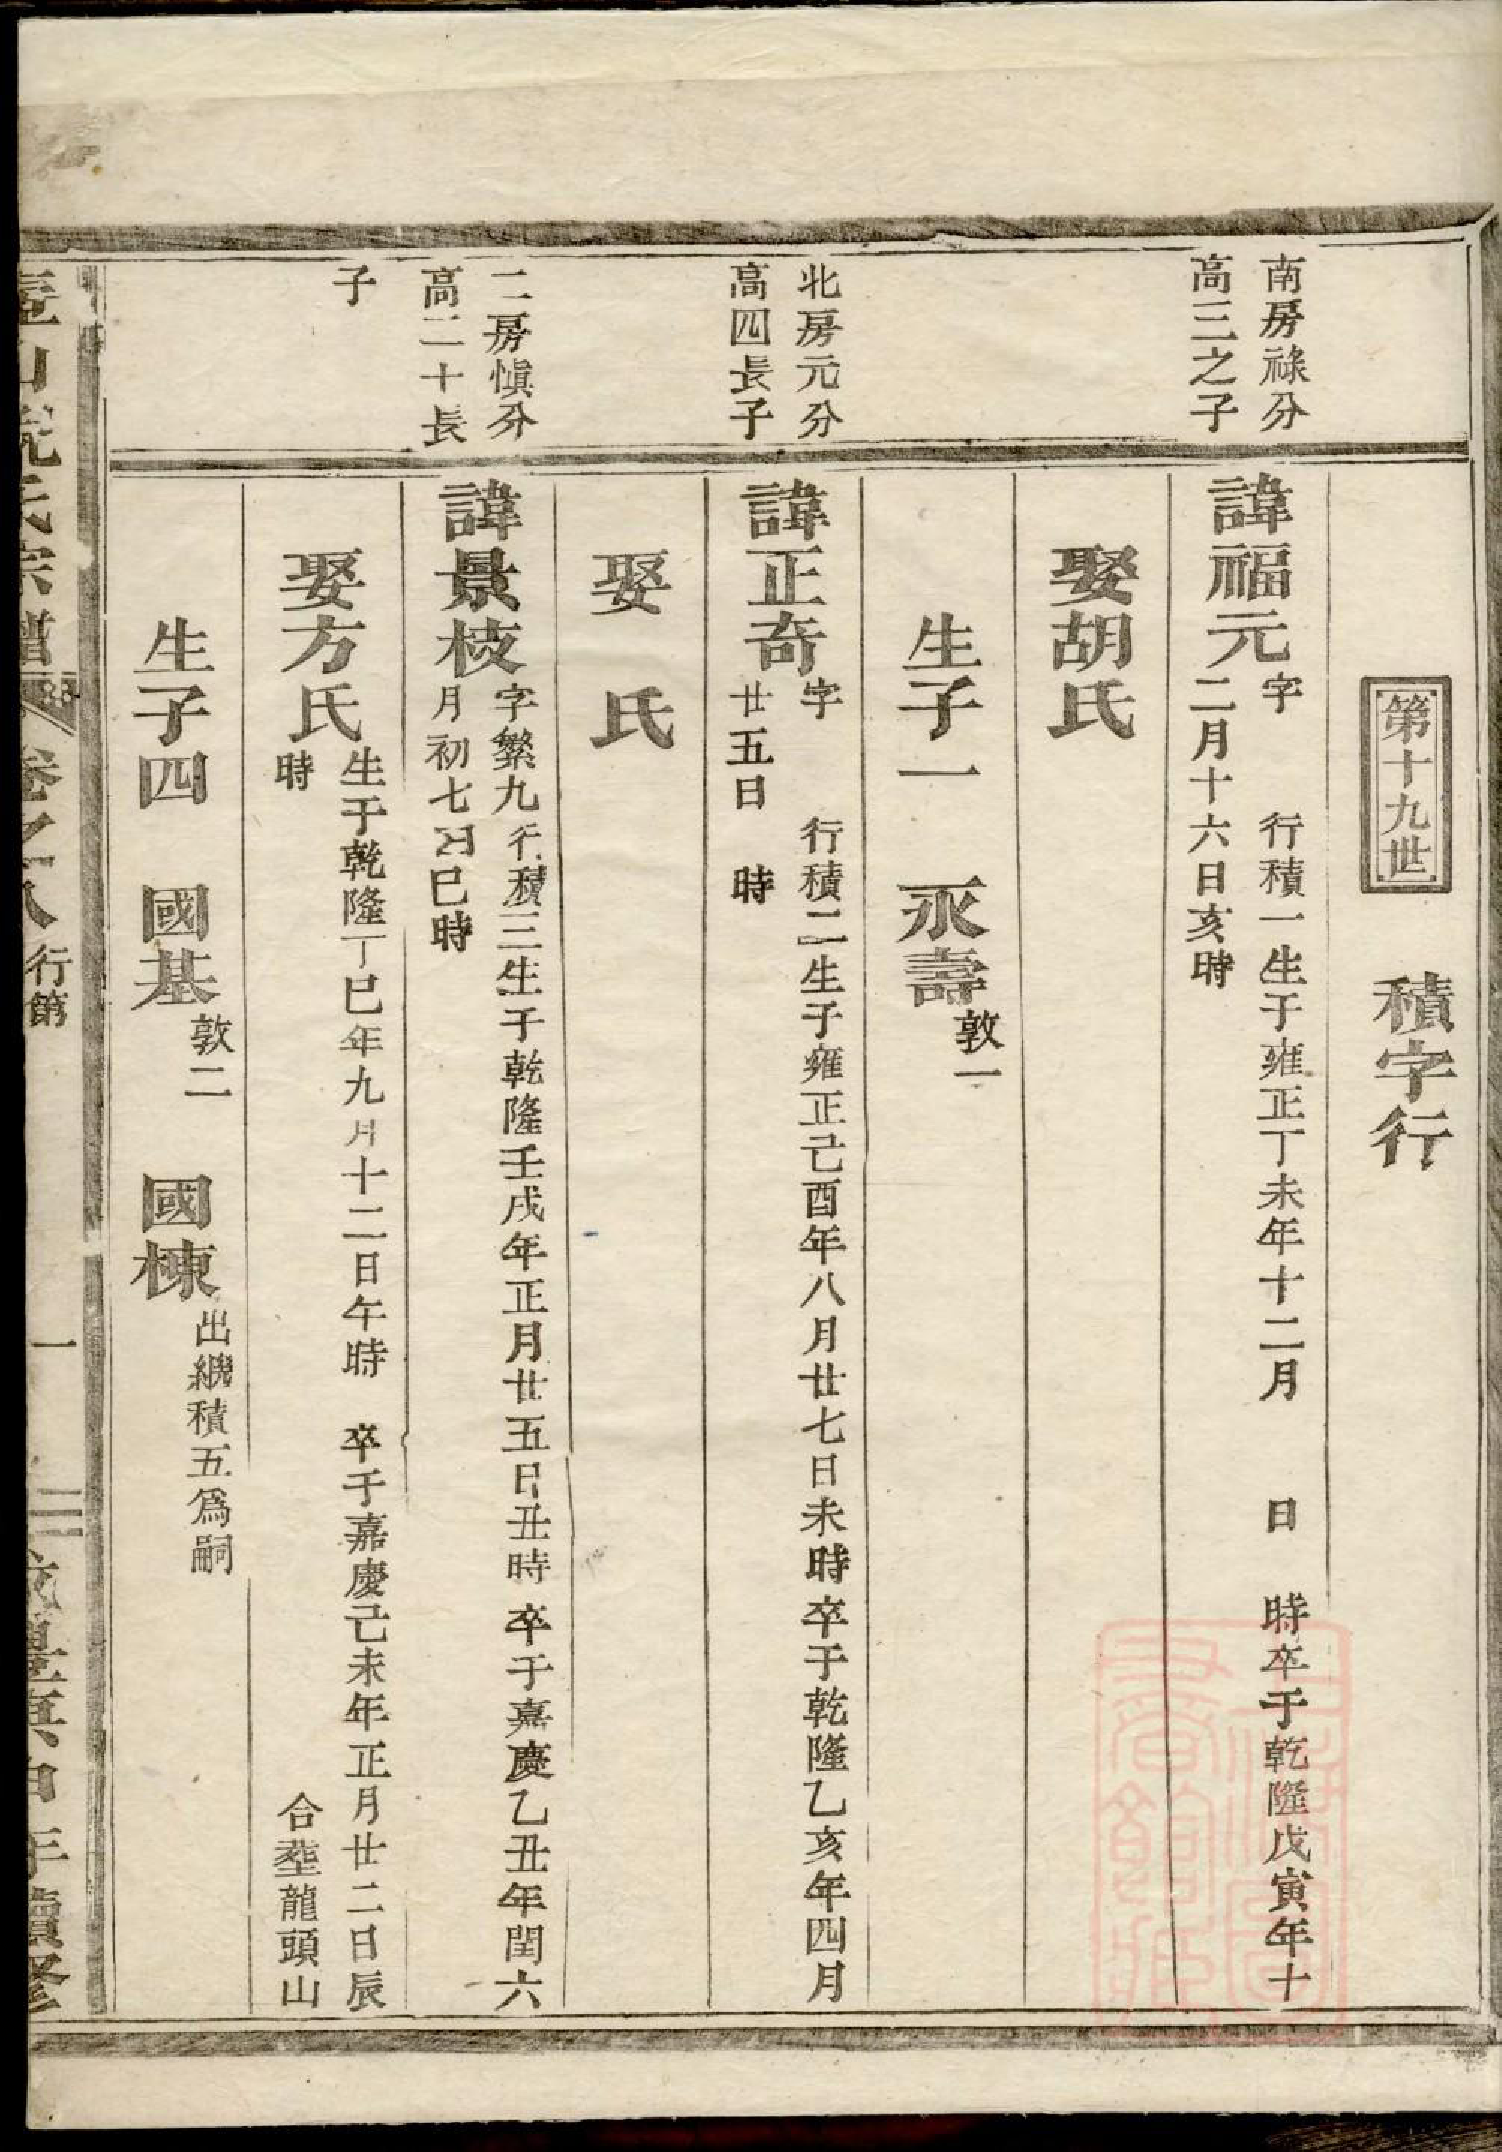 第十九世　積字行
南房祿分
高三之子
諱福元　字　行積一生于雍正丁未年十二月　日　時卒于乾隆戊寅年十
二月十六日亥時
娶胡氏
生子一　永壽　敦一
北房元分
高四長子
諱正奇　字　行積二生于雍正己酉年八月廿七日未時卒于乾隆乙亥年四月
廿五日　時
娶　氏
二房愼分
高二十長
子
諱景枝　字繁九行積三生于乾隆壬戌年正月廿五日丑時卒于嘉慶乙丑年閏六
月初七日巳時
娶方氏　生于乾隆丁巳年九月十二日午時　卒于嘉慶己未年正月廿二日辰
時　合塟龍頭山
生子四　國基　敦二　國棟　出繼積五爲嗣
氏宗譜　卷之八　行第　一　年續修